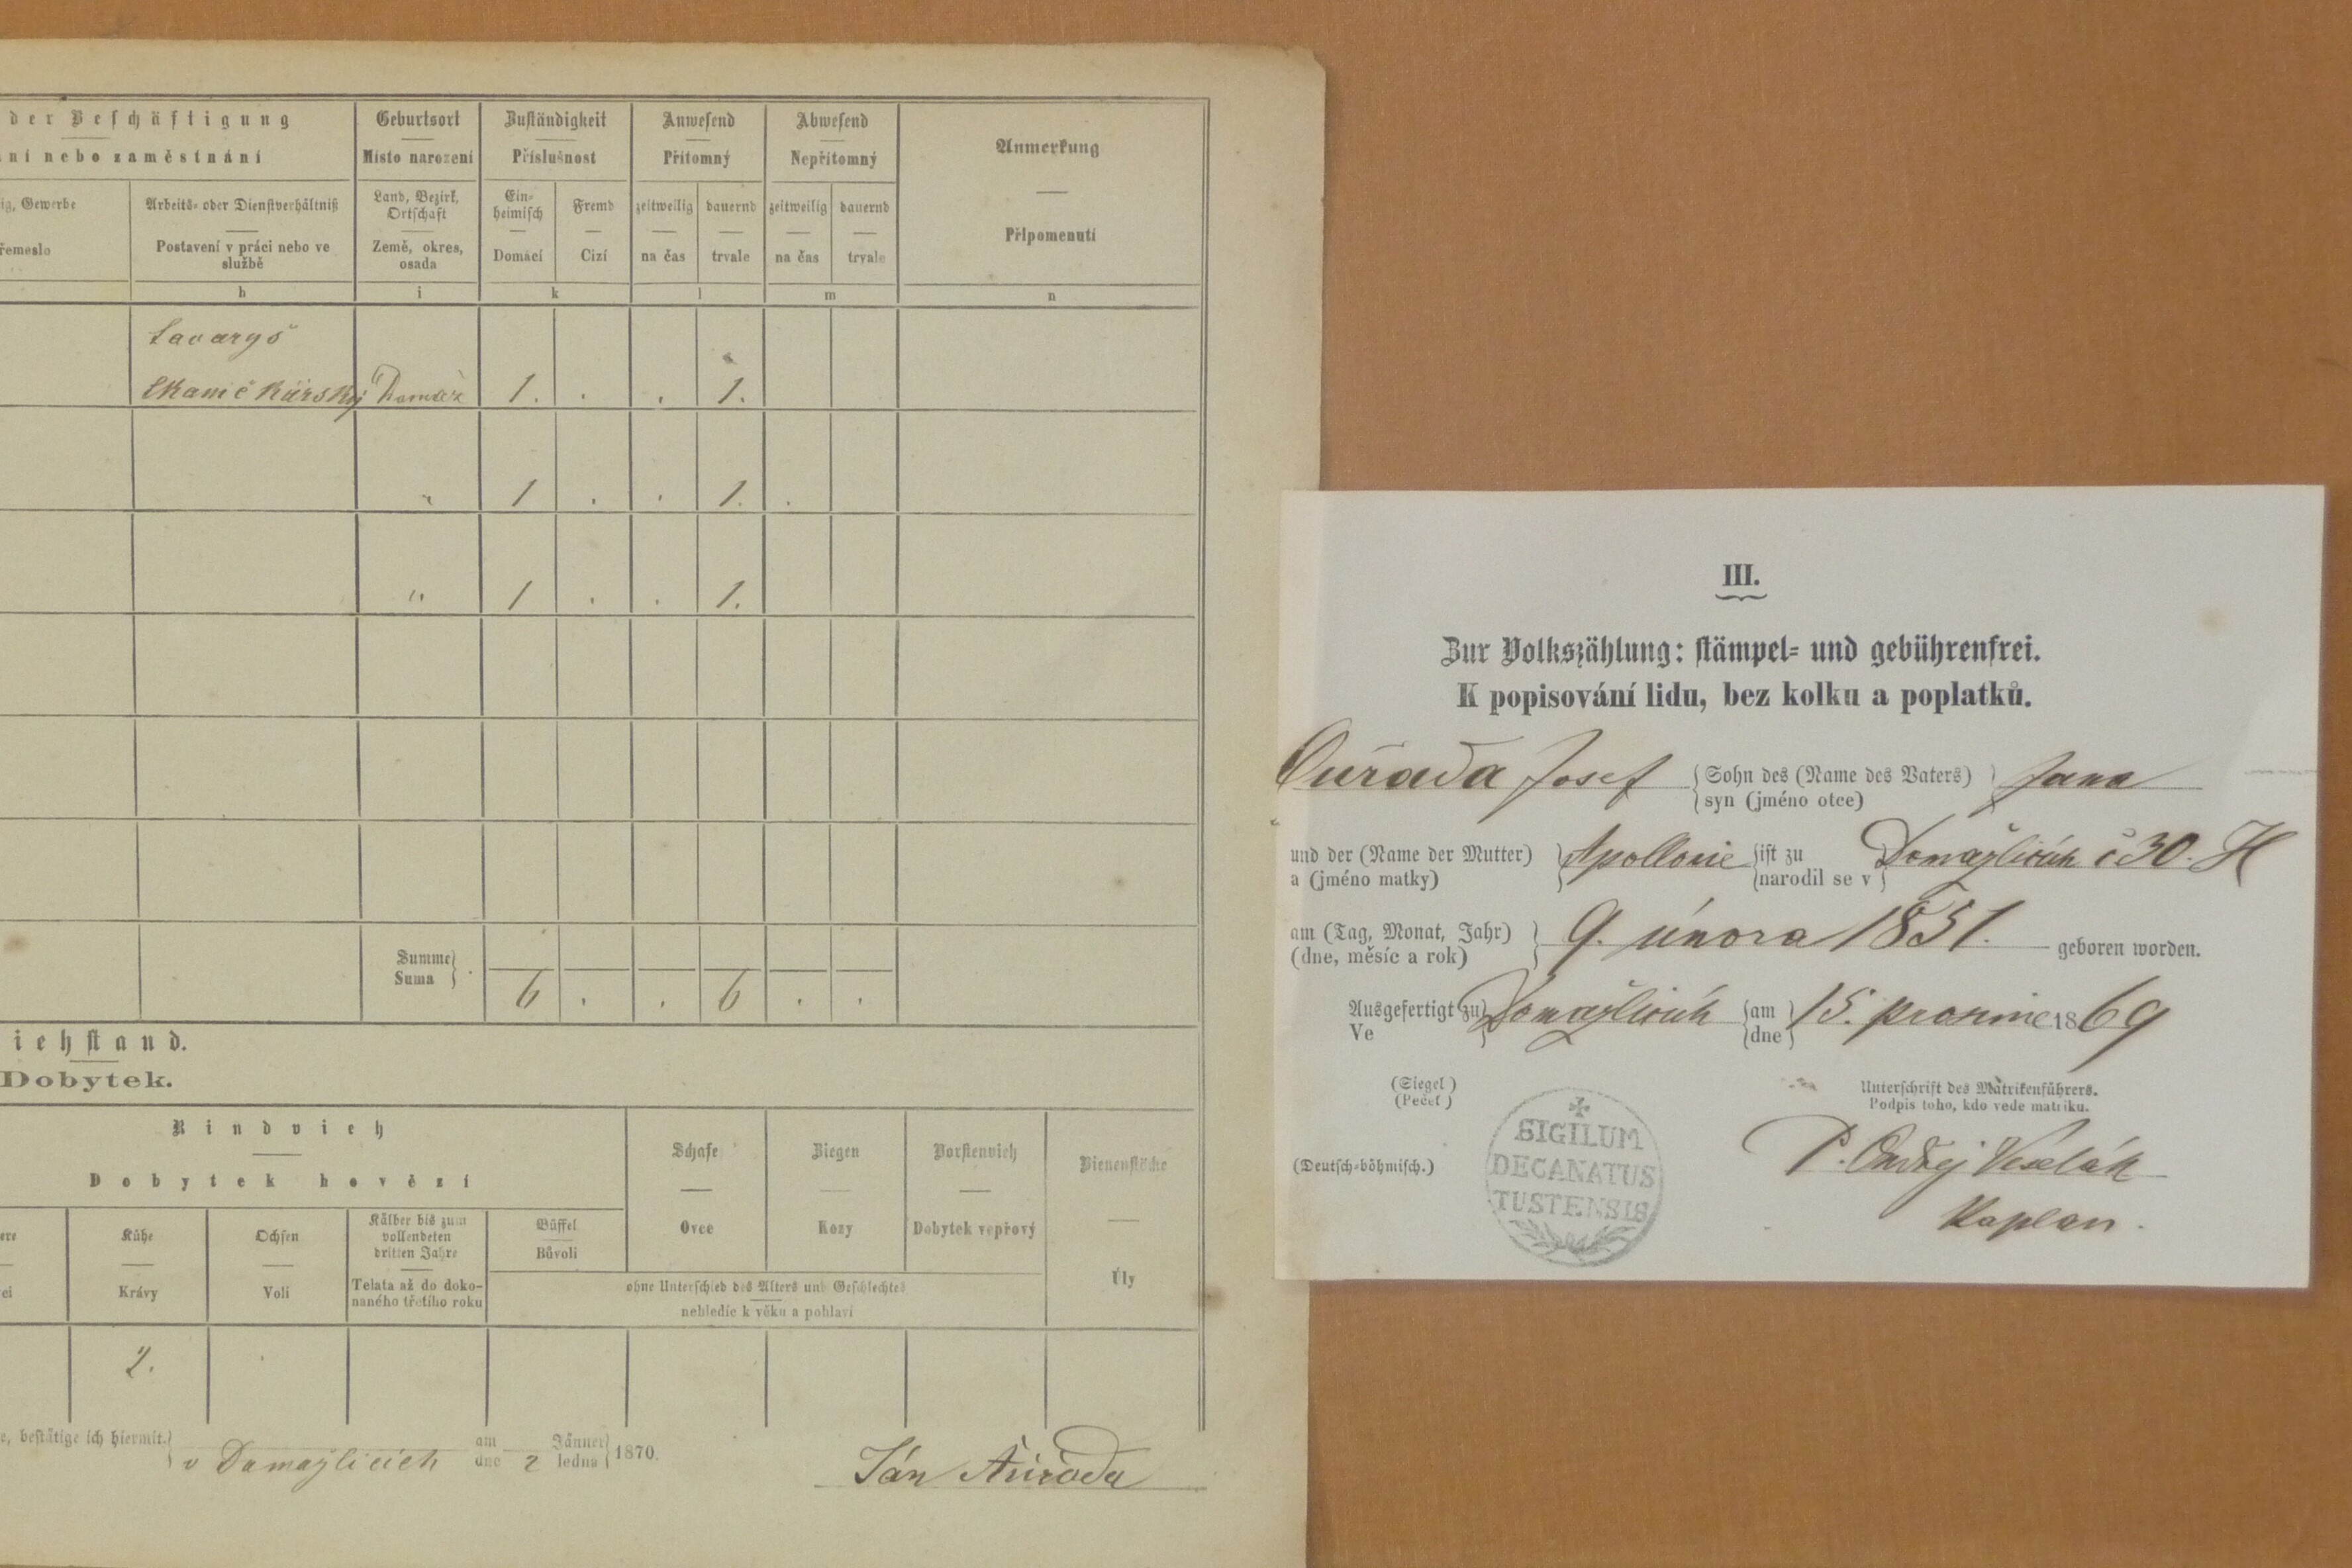 der Beschäftigung
ní nebo zaměstnání
Geburtsort
Místo narození
Zuständigkeit
Příslušnost
Anwesend
Přítomný
Abwesend
Nepřítomný
Anmerkung
Připomenutí
ig, Gewerbe
řemeslo
Arbeits- oder Dienstverhältniß
Postavení v práci nebo ve
službě
Land, Bezirk,
Ortschaft
Země, okres,
osada
Ein-
heimisch
Domácí
Fremd
Cizí
zeitweilig
na čas
dauernd
trvale
zeitweilig
na čas
dauernd
trvale
h i k l m n
1. . . 1.
" 1 . . 1. .
" 1 . . 1.
Summe
Suma
6 . . 6 . .
iehstand.
Dobytek.
Rindvieh
Dobytek hovězí
Schafe
Ovce
Ziegen
Kozy
Borstenvieh
Dobytek vepřový
Bienenstöcke
Úly
ere
ei
Kühe
Krávy
Ochsen
Voli
Kälber bis zum
vollendeten
dritten Jahre
Telata až do doko-
naného třetího roku
Büffel
Bůvoli
ohne Unterschied des Alters und Geschlechtes
nehledíc k věku a pohlaví
2.
e, bestätige ich hiermit.
v Domažlicích am dne 2 Jänner ledna 1870.
Ján Auřada
III.
Zur Volkszählung: stämpel- und gebührenfrei.
K popisování lidu, bez kolku a poplatků.
Ouřada Josef Sohn des (Name des Vaters) Jana
syn (jméno otce)
und der (Name der Mutter) Apollonie ist zu Domažlicích č 30. H
a (jméno matky) narodil se v
am (Tag, Monat, Jahr) 9. února 1851. geboren worden.
(dne, měsíc a rok)
Ausgefertigt zu Domažlicích am 15. prosince 1869
Ve dne
(Siegel)
(Pečeť)
Unterschrift des Matrikenführers.
Podpis toho, kdo vede matriku.
SIGILUM
DECANATUS
TUSTENSIS
(Deutsch-böhmisch.)
P. Ondřej Veselák
Kaplan.